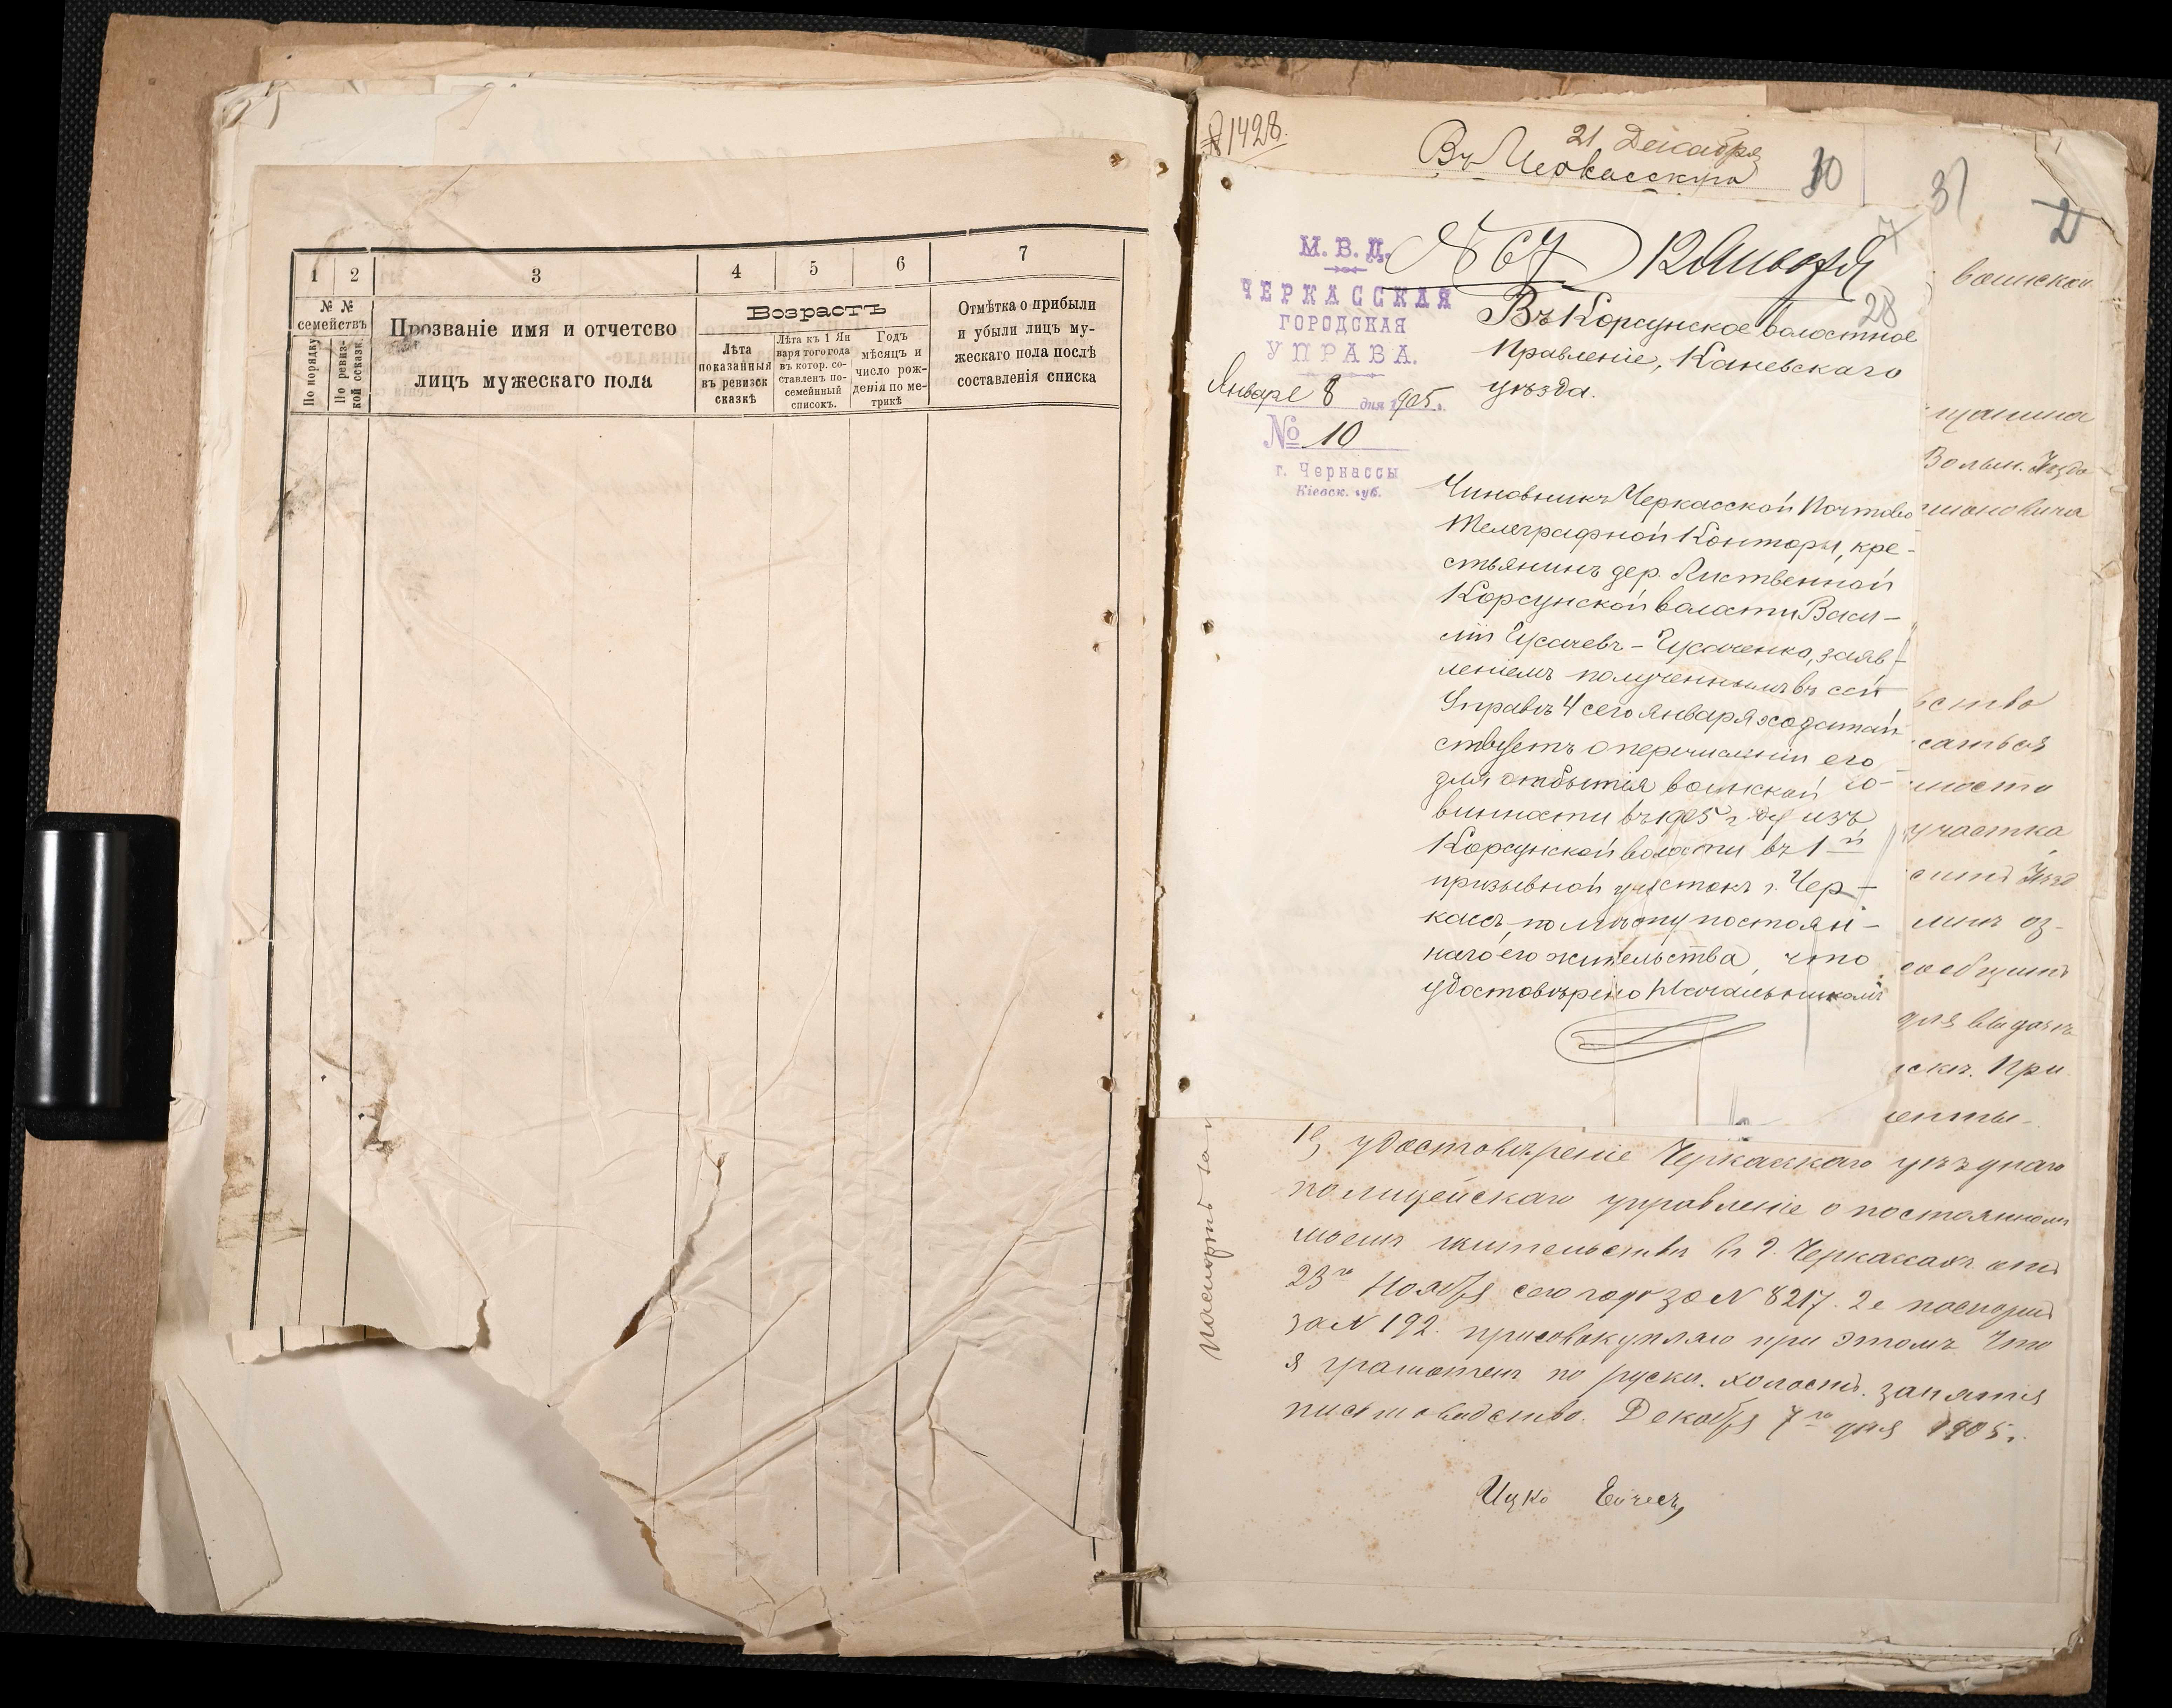 1 2 3 4 5 6 7
№ №
семействъ
По порядку
По ревиз-
кой сказк.
Прозваніе имя и отчетсво
лицъ мужескаго пола
Возрастъ
Лѣта
показанныя
въ ревизск
сказкѣ
Лѣта къ 1 Ян
варя того года
въ котор. со-
ставленъ по-
семейный
списокъ.
Годъ
мѣсяцъ и
число рож-
денія по ме-
трикѣ
Отмѣтка о прибыли
и убыли лицъ му-
жескаго пола послѣ
составленія списка
№1428.
21 Декабря
Въ Черкасскую
30
31
2
М. В. Д.
ЧЕРКАССКАЯ
ГОРОДСКАЯ
УПРАВА.
Января 8 дня 1905 г.
№ 10
г. Черкассы
Кіевск. губ.
№ 67 12 Января
28
Въ Корсунское волостное
Правленіе, Каневскаго
уѣзда.
Чиновникъ Черкасской Почтово
Телеграфной Конторы, кре-
стьянинъ дер. Лиственной
Корсунской волости Васи-
лій Гусачевъ-Гусаченко, заяв-
леніемъ полученнымъ въ сей
Управѣ 4 сего Января ходатай
ствуетъ о перечисленіи его
для отбытія воинской по-
винности въ 1905 году изъ
Корсунской волости въ 1й
призывной участокъ г. Чер-
кассъ, по мѣсту постоян-
наго его жительства, что
удостовѣрено Начальникомъ
воинской
щанина
Волын. Уѣзда
ьство
саться
участка
сообщит
для выдачи
При
енты.
1е, удостовѣреніе Черкасскаго уѣзднаго
полицейскаго управленіе о постоянномъ
моемъ жительствѣ въ г. Черкассахъ отъ
23го Ноября сего года за № 8217. 2е паспортъ
за № 192. присовокупляю при этомъ что
я грамотенъ по руски. холостъ. занятія
письмоводство. Декабря 7го дня 1905 г.
Ицко
Паспортъ